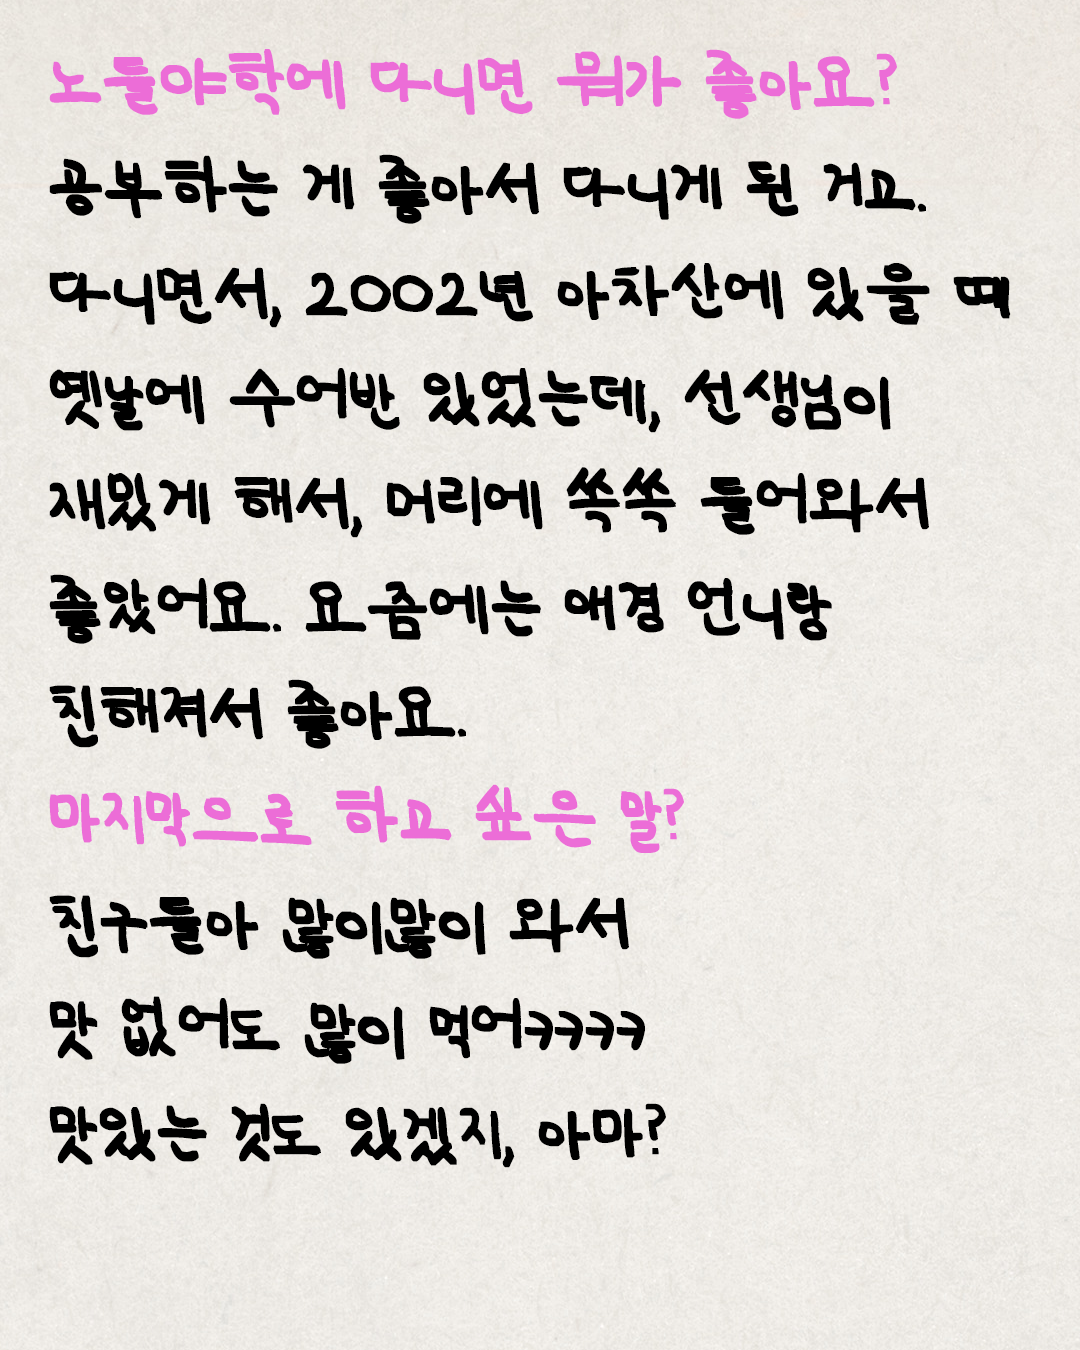 노들야학에 다니면 뭐가 좋아요?
공부하는 게 좋아서 다니게 된 거고.
다니면서, 2002년 아차산에 있을 때
옛날에 수어반 있었는데, 선생님이
재밌게 해서, 머리에 쏙쏙 들어와서
좋았어요. 요즘에는 애경 언니랑
친해져서 좋아요.
마지막으로 하고 싶은 말?
친구들아 많이많이 와서
맛 없어도 많이 먹어ㅋㅋㅋㅋ
맛있는 것도 있겠지, 아마?